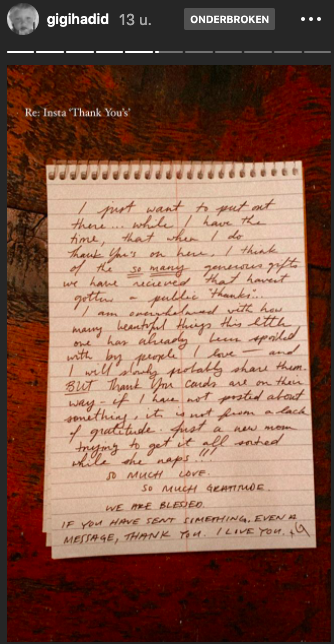 gigihadid 13 u. ONDERBROKEN
Re: Insta 'Thank You's'
I just want to put out
there... while I have the
time, that when I do
thank you's on here, I think
of the so many generous gifts
we have recieved that havent
gotten a public 'thanks'...
I am overwhelmed with how
many beautiful things this little
one has already been spoiled
with by people I love — and
I will slowly probably share them.
BUT Thank You cards are on their
way - if I have not posted about
something, it is not from a lack
of gratitude. Just a new mom
trying to get it all sorted
while she naps...!!!
SO MUCH LOVE.
SO MUCH GRATITUDE.
WE ARE BLESSED.
IF YOU HAVE SENT SOMETHING, EVEN A
MESSAGE, THANK YOU. I LOVE YOU. xG